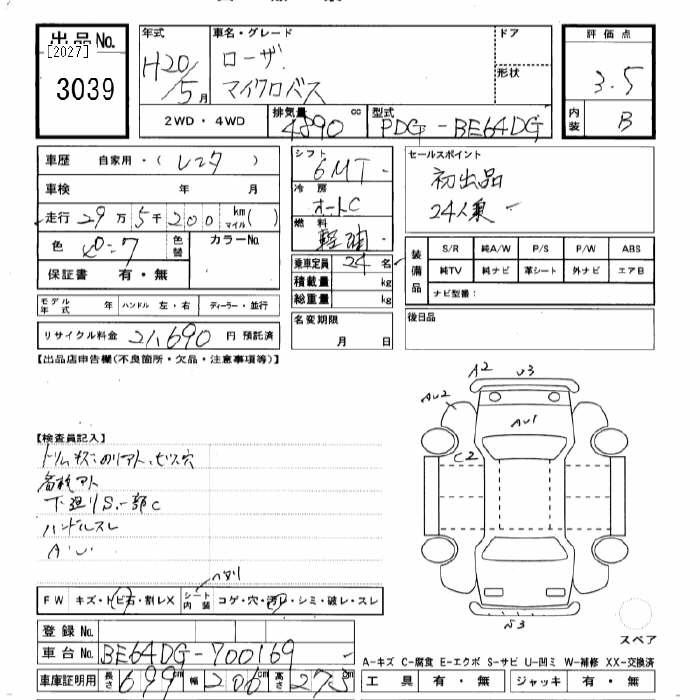 出品No.
[2027]
3039
年式
H20/5月
車名・グレード
ローザ
マイクロバス
ドア
形状
評価点
3.5
内装
B
2WD・4WD
排気量 4890 cc
型式 PDG-BE64DG
車歴 自家用・( レンタ )
車検 年 月
走行 29万5千200 km マイル( )
色 シロ
色替
カラーNo.
保証書 有・無
モデル年式 年 ハンドル 左・右 ディーラー・並行
リサイクル料金 21,690 円 預託済
シフト 6MT
冷房 オートC
燃料 軽油
乗車定員 24 名
積載量 kg
総重量 kg
名変期限
月 日
セールスポイント
初出品
24人乗
装備品
S/R 純A/W P/S P/W ABS
純TV 純ナビ 革シート 外ナビ エアB
ナビ型番:
後日品
【出品店申告欄(不良箇所・欠品・注意事項等)】
A2
U3
AU2
AU1
C2
【検査員記入】
下廻りS.一部C
ハンドルスレ
A.U.
ヘタリ
FW キズ・トビ石・割レX
シート内装 コゲ・穴・汚レ・シミ・破レ・スレ
S3
スペア
登録No.
車台No. BE64DG-700169
車庫証明用 長さ 699 cm 幅 206 cm 高さ 275 cm
A-キズ C-腐食 E-エクボ S-サビ U-凹ミ W-補修 XX-交換済
工具 有・無 ジャッキ 有・無